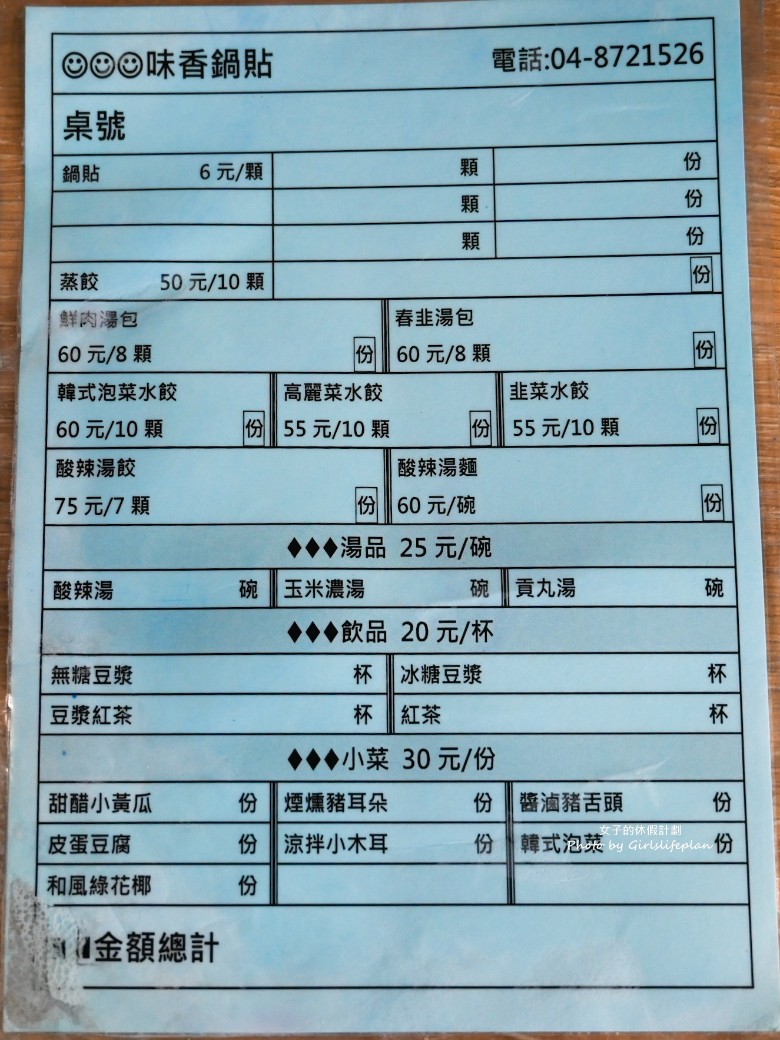 ☺☺☺味香鍋貼 電話:04-8721526
桌號
鍋貼 6 元/顆 顆 份
顆 份
顆 份
蒸餃 50 元/10 顆 份
鮮肉湯包 春韭湯包
60 元/8 顆 份 60 元/8 顆 份
韓式泡菜水餃 高麗菜水餃 韭菜水餃
60 元/10 顆 份 55 元/10 顆 份 55 元/10 顆 份
酸辣湯餃 酸辣湯麵
75 元/7 顆 份 60 元/碗 份
♦♦♦湯品 25 元/碗
酸辣湯 碗 玉米濃湯 碗 貢丸湯 碗
♦♦♦飲品 20 元/杯
無糖豆漿 杯 冰糖豆漿 杯
豆漿紅茶 杯 紅茶 杯
♦♦♦小菜 30 元/份
甜醋小黃瓜 份 煙燻豬耳朵 份 醬滷豬舌頭 份
皮蛋豆腐 份 涼拌小木耳 份 韓式泡菜 份
女子的休假計劃
Photo by Girlslifeplan
和風綠花椰 份
金額總計